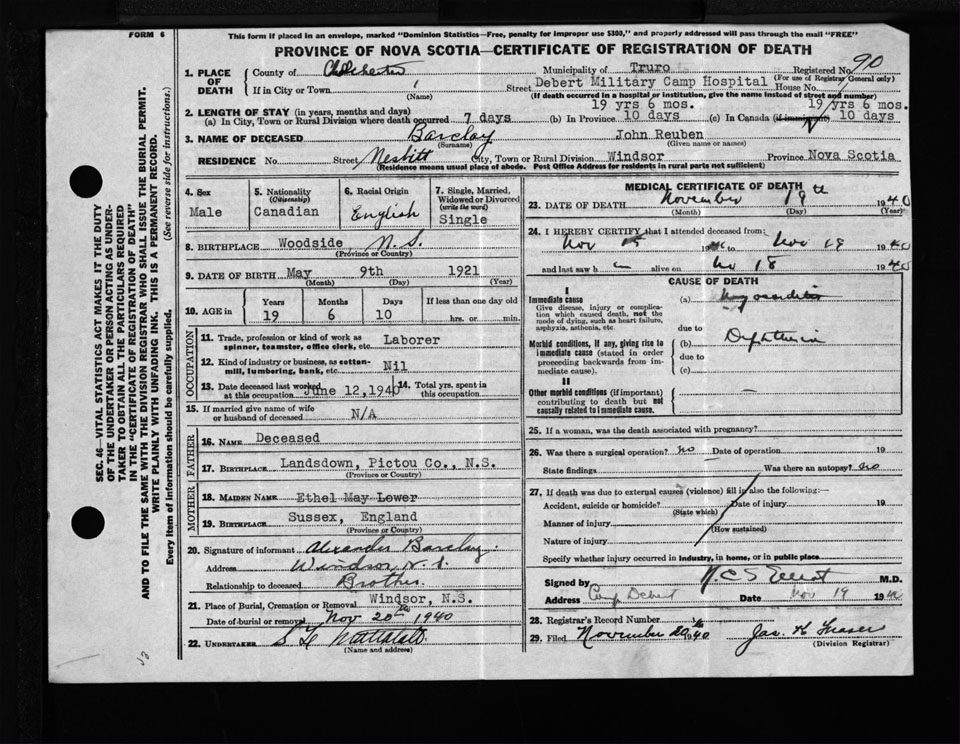 FORM 6
This form if placed in an envelope, marked "Dominion Statistics—Free, penalty for improper use $300," and properly addressed will pass through the mail "FREE"
PROVINCE OF NOVA SCOTIA—CERTIFICATE OF REGISTRATION OF DEATH
SEC. 46—VITAL STATISTICS ACT MAKES IT THE DUTY
OF THE UNDERTAKER OR PERSON ACTING AS UNDER-
TAKER TO OBTAIN ALL THE PARTICULARS REQUIRED
IN THE "CERTIFICATE OF REGISTRATION OF DEATH"
AND TO FILE THE SAME WITH THE DIVISION REGISTRAR WHO SHALL ISSUE THE BURIAL PERMIT.
WRITE PLAINLY WITH UNFADING INK. THIS IS A PERMANENT RECORD.
Every item of Information should be carefully supplied. (See reverse side for instructions.)
1. PLACE OF DEATH County of Colchester Municipality of Truro Registered No. 90
(For use of Registrar General only)
If in City or Town (Name) Street Debert Military Camp Hospital House No.
(If death occurred in a hospital or institution, give the name instead of street and number)
2. LENGTH OF STAY (in years, months and days) 19 yrs 6 mos. 19 yrs 6 mos.
(a) In City, Town or Rural Division where death occurred 7 days (b) In Province 10 days (c) In Canada (if immigrant) 10 days
3. NAME OF DECEASED Barclay John Reuben
(Surname) (Given name or names)
RESIDENCE No. Street Nesbitt City, Town or Rural Division Windsor Province Nova Scotia
(Residence means usual place of abode. Post Office Address for residents in rural parts not sufficient)
4. Sex Male
5. Nationality (Citizenship) Canadian
6. Racial Origin English
7. Single, Married, Widowed or Divorced (write the word) Single
8. BIRTHPLACE Woodside, N.S.
(Province or Country)
9. DATE OF BIRTH May 9th 1921
(Month) (Day) (Year)
10. AGE in Years 19 Months 6 Days 10 If less than one day old hrs. or min.
OCCUPATION
11. Trade, profession or kind of work as spinner, teamster, office clerk, etc. Laborer
12. Kind of industry or business, as cotton-mill, lumbering, bank, etc. Nil
13. Date deceased last worked at this occupation June 12, 1940 14. Total yrs. spent in this occupation
15. If married give name of wife or husband of deceased N/A
FATHER
16. NAME Deceased
17. BIRTHPLACE Landsdown, Pictou Co., N.S.
(Province or Country)
MOTHER
18. MAIDEN NAME Ethel May Lower
19. BIRTHPLACE Sussex, England
(Province or Country)
20. Signature of informant Alexander Barclay
Address Windsor N.S.
Relationship to deceased Brother
21. Place of Burial, Cremation or Removal Windsor, N.S.
Date of burial or removal Nov 20th 1940
22. UNDERTAKER
(Name and address)
MEDICAL CERTIFICATE OF DEATH
23. DATE OF DEATH November 19th 1940
(Month) (Day) (Year)
24. I HEREBY CERTIFY that I attended deceased from:
Nov 15 19 to Nov 18 1940
and last saw h alive on 18 1940
CAUSE OF DEATH
I
Immediate cause (a) Myocarditis
Give disease, injury or complication which caused death, not the mode of dying, such as heart failure, asphyxia, asthenia, etc
due to
Morbid conditions, if any, giving rise to immediate cause (stated in order proceeding backwards from immediate cause). (b) Diphtheria
due to
(c)
II
Other morbid conditions (if important) contributing to death but not causally related to immediate cause.
25. If a woman, was the death associated with pregnancy?
26. Was there a surgical operation? no Date of operation 19
State findings Was there an autopsy? no
27. If death was due to external causes (violence) fill in also the following:—
Accident, suicide or homicide? Date of injury 19
(State which)
Manner of injury
(How sustained)
Nature of injury
Specify whether injury occurred in industry, in home, or in public place
Signed by M.D.
Address Camp Debert Date Nov 19 1940
28. Registrar's Record Number
29. Filed November 20 1940 Jas. K Fraser
(Division Registrar)